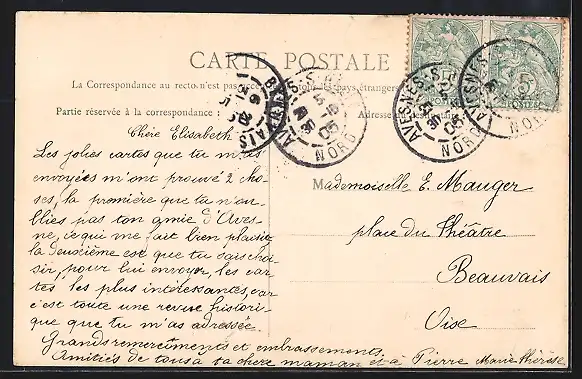 CARTE POSTALE
La Correspondance au recto n'est pas
tous les pays étrangers
Partie réservée à la correspondance :
Adresse
Chère Elisabeth
Les jolies cartes que tu m'as
envoyées m'ont prouvé 2 cho-
ses, la première que tu n'ou-
blies pas ton amie d'Aves-
ne, ce qui me fait bien plaisir
la deuxième est que tu sais choi-
sir, pour lui envoyer, les car-
tes les plus intéressantes, car
c'est toute une revue histori-
que que tu m'as adressée.
Grands remerciments et embrassements.
Amitiés de tous à ta chère maman et à Pierre Marie Thérèse
Mademoiselle E. Mauger
place du Théâtre
Beauvais
Oise
BEAUVAIS
AVESNES-S
NORD
AVESNES-S
NORD
AVESNES-S
NORD
5
POSTES